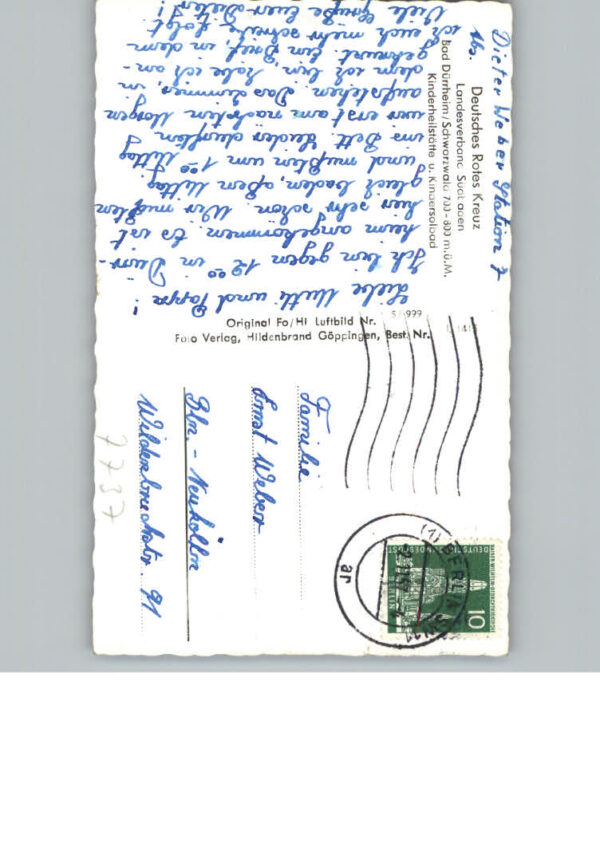 Dieter Weber Station 7
Abs.
Deutsches Rotes Kreuz
Landesverband Südbaden
Bad Dürrheim/Schwarzwald 700-800 m.ü.M.
Kinderheilstätte u. Kindersolbad
Liebe Mutti und Pappa!
Ich bin gegen 12 00 in Dürr-
heim angekommen. Es ist
hier sehr schön. Wir mußten
gleich baden, aßen Mittag
und mußten um 1 00 Mittag
ins Bett. Leider durften
wir erst am nächsten Morgen
aufstehen. Das Zimmer, in
dem ich bin, habe ich an-
gekreuzt. Ein Brief, in dem
ich euch mehr schreibe folgt
Viele Grüße Euer Dieter!
Original Fo/Hi Luftbild Nr. 5/999
Foto Verlag, Hildenbrand Göppingen, Best. Nr.
Familie
Ernst Weber
Bln.-Neukölln
Wildenbruchstr. 91
7737
10
DEUTSCHE BUNDESPOST
BERLIN
(1) BERLIN
ar